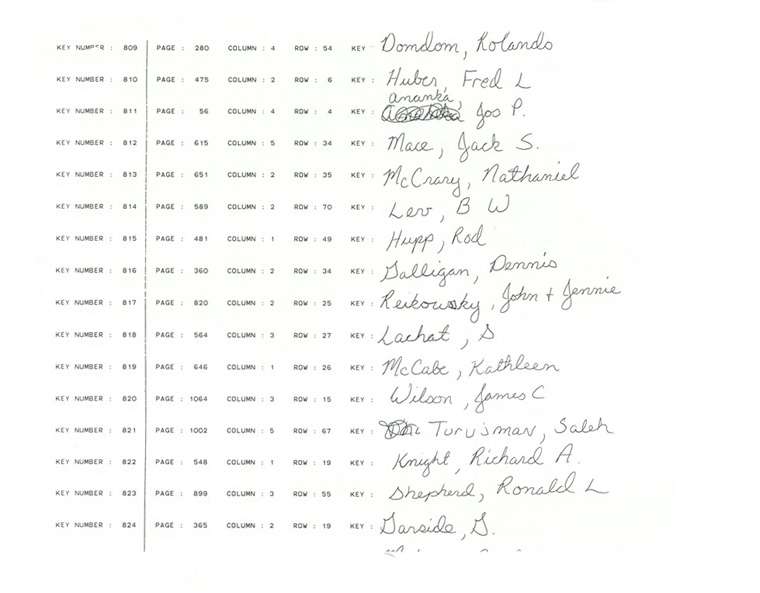 KEY NUMBER : 809 PAGE : 280 COLUMN : 4 ROW : 54 KEY Domdom, Rolando
KEY NUMBER : 810 PAGE : 475 COLUMN : 2 ROW : 6 KEY : Huber, Fred L
ananka,
KEY NUMBER : 811 PAGE : 56 COLUMN : 4 ROW : 4 KEY : Jos P.
KEY NUMBER : 812 PAGE : 615 COLUMN : 5 ROW : 34 KEY : Mace, Jack S.
KEY NUMBER : 813 PAGE : 651 COLUMN : 2 ROW : 35 KEY : McCrary, Nathaniel
KEY NUMBER : 814 PAGE : 589 COLUMN : 2 ROW : 70 KEY : Lev, B W
KEY NUMBER : 815 PAGE : 481 COLUMN : 1 ROW : 49 KEY : Hupp, Rod
KEY NUMBER : 816 PAGE : 360 COLUMN : 2 ROW : 34 KEY : Galligan, Dennis
KEY NUMBER : 817 PAGE : 820 COLUMN : 2 ROW : 25 KEY : Reikowsky, John + Jennie
KEY NUMBER : 818 PAGE : 564 COLUMN : 3 ROW : 27 KEY : Lachat, S
KEY NUMBER : 819 PAGE : 646 COLUMN : 1 ROW : 26 KEY : McCabe, Kathleen
KEY NUMBER : 820 PAGE : 1064 COLUMN : 3 ROW : 15 KEY : Wilson, James C
KEY NUMBER : 821 PAGE : 1002 COLUMN : 5 ROW : 67 KEY : Turusman, Saleh
KEY NUMBER : 822 PAGE : 548 COLUMN : 1 ROW : 19 KEY : Knight, Richard A.
KEY NUMBER : 823 PAGE : 899 COLUMN : 3 ROW : 55 KEY : Shepherd, Ronald L
KEY NUMBER : 824 PAGE : 365 COLUMN : 2 ROW : 19 KEY : Garside, G.